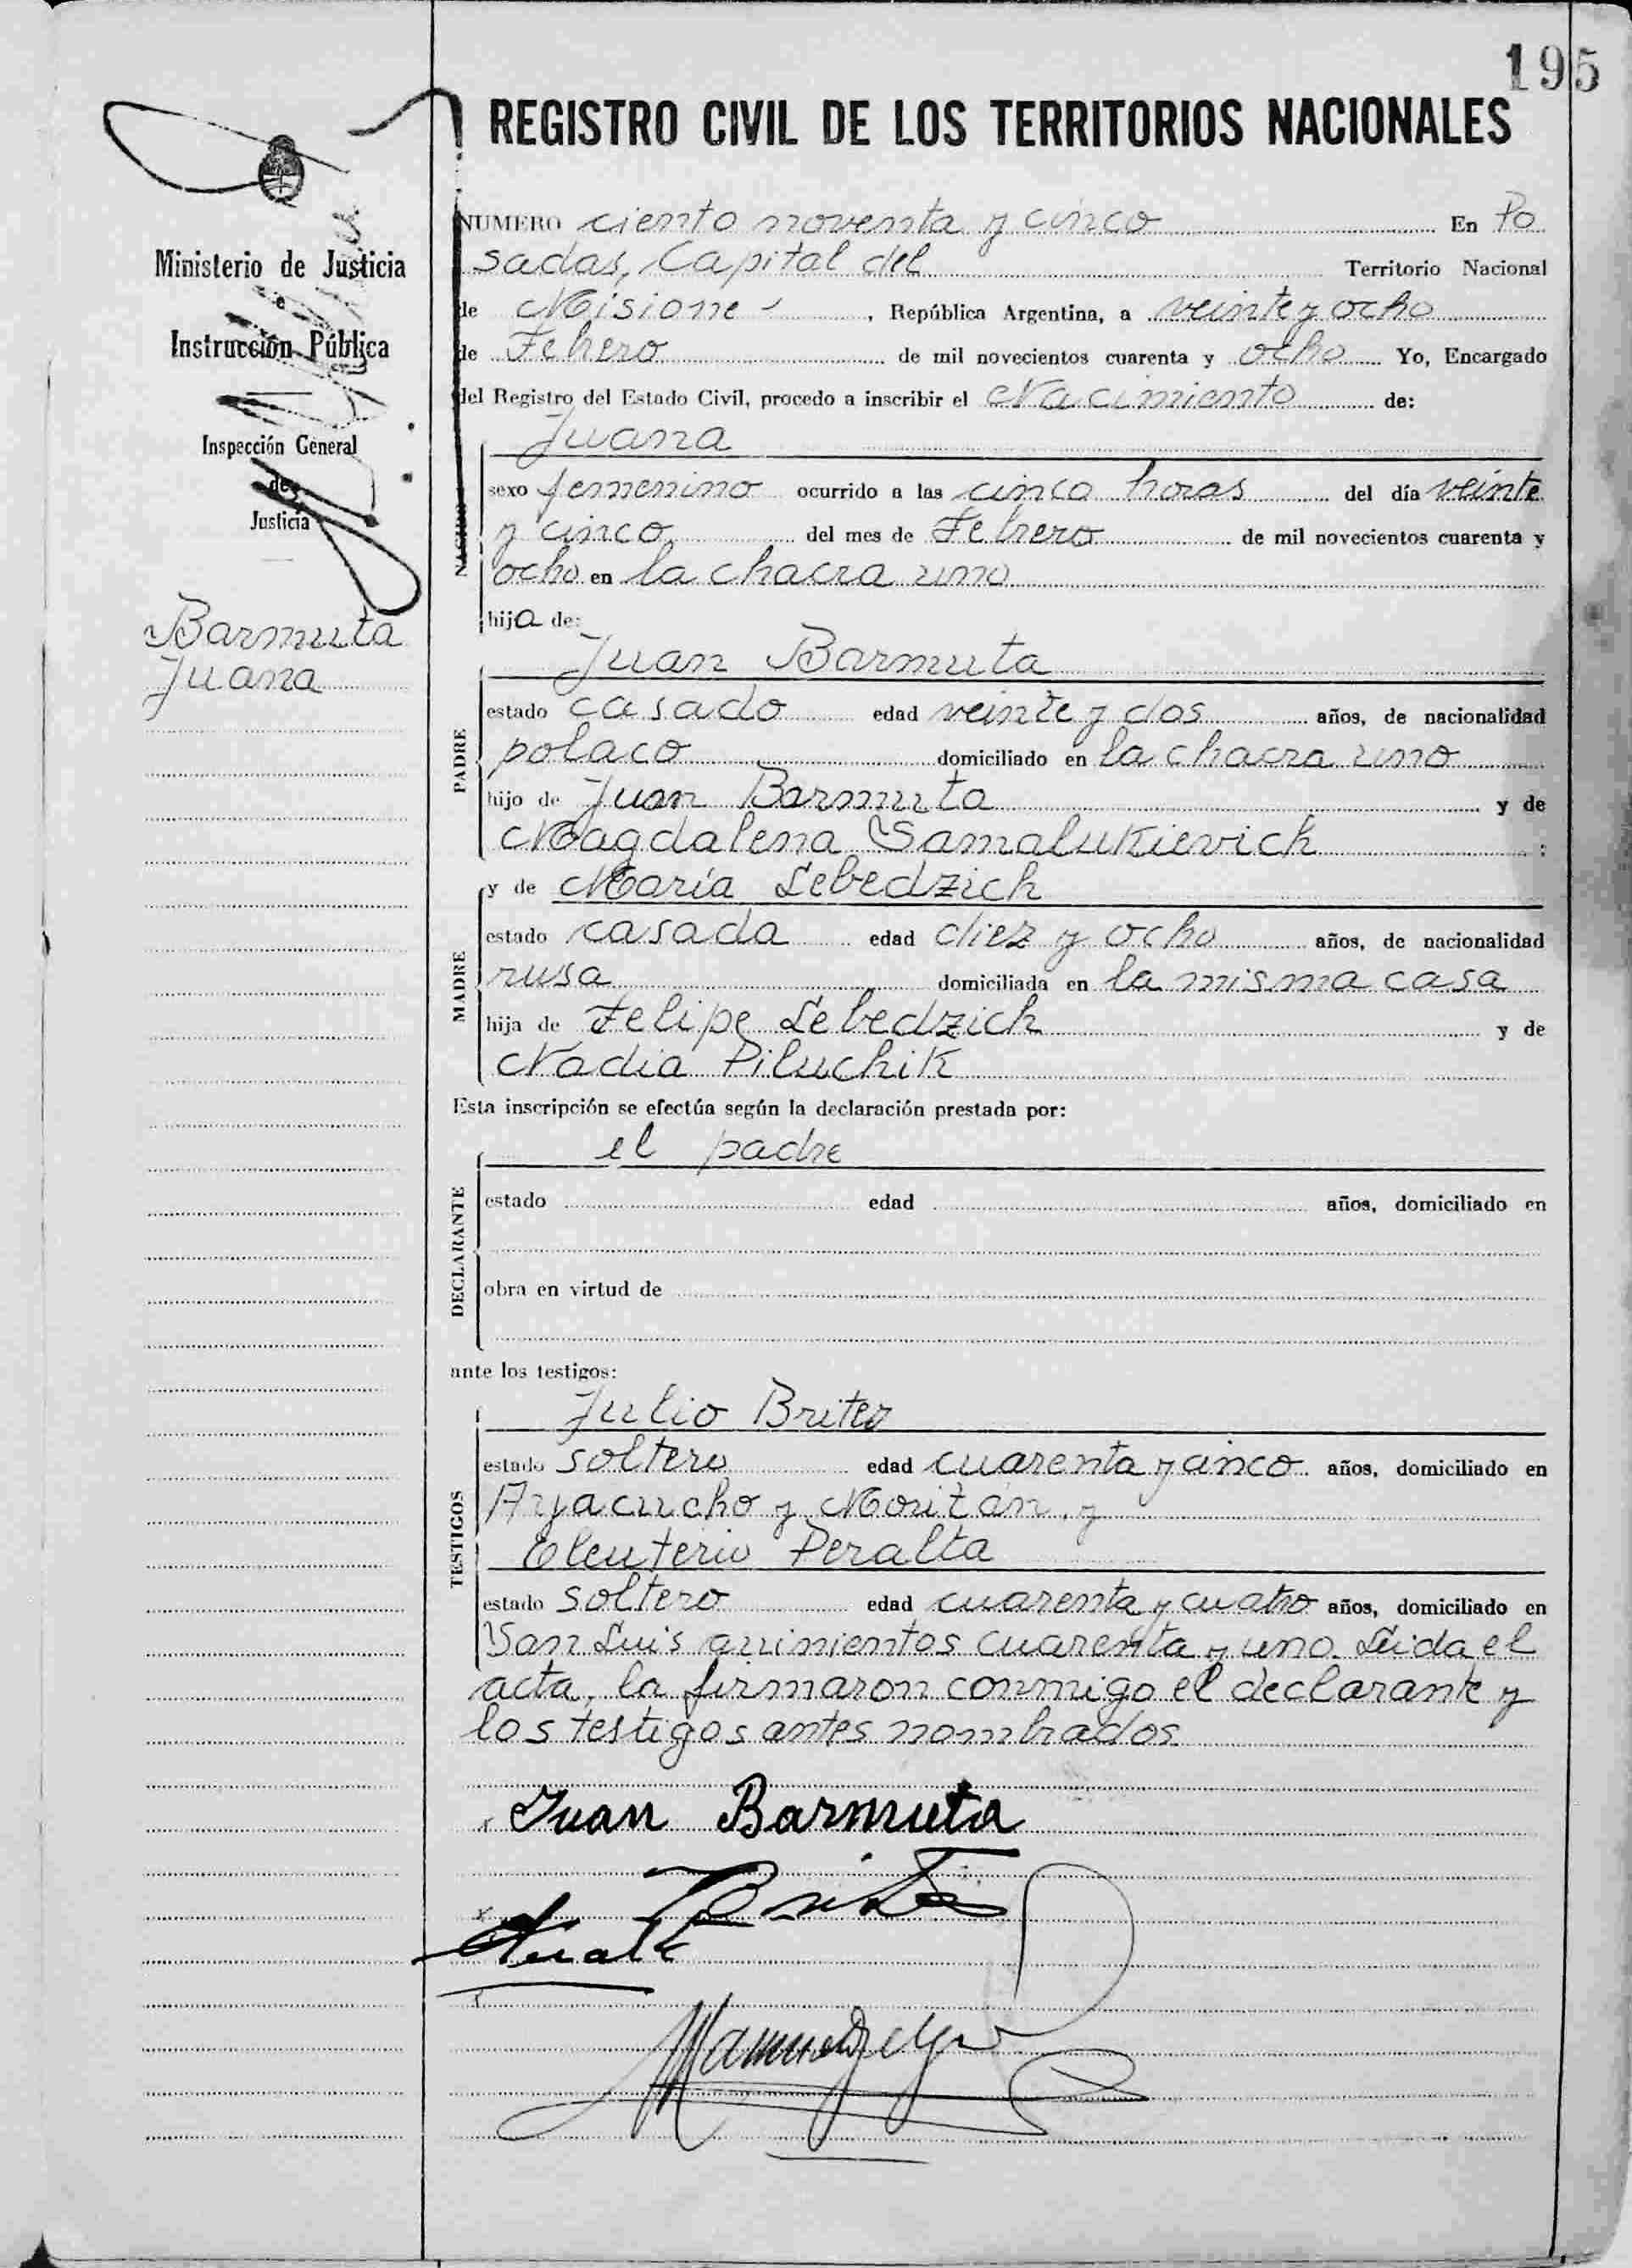 195
REGISTRO CIVIL DE LOS TERRITORIOS NACIONALES
Ministerio de Justicia
e
Instrucción Pública
Inspección General
de
Justicia
Barmuta
Juana
NUMERO ciento noventa y cinco En Po
sadas, Capital del Territorio Nacional
de Misiones, República Argentina, a veinte y ocho
de Febrero de mil novecientos cuarenta y ocho Yo, Encargado
del Registro del Estado Civil, procedo a inscribir el Nacimiento de:
NACIDO
Juana
sexo femenino ocurrido a las cinco horas del día veinte
y cinco del mes de Febrero de mil novecientos cuarenta y
ocho en la chacra uno
hija de:
PADRE
Juan Barmuta
estado casado edad veinte y dos años, de nacionalidad
polaco domiciliado en la chacra uno
hijo de Juan Barmuta y de
Magdalena Samalukievich ;
MADRE
y de María Lebedzich
estado casada edad diez y ocho años, de nacionalidad
rusa domiciliada en la misma casa
hija de Felipe Lebedzich y de
Nadia Piluchik
Esta inscripción se efectúa según la declaración prestada por:
DECLARANTE
el padre
estado edad años, domiciliado en
obra en virtud de
ante los testigos:
TESTIGOS
Julio Britez
estado soltero edad cuarenta y cinco años, domiciliado en
Ayacucho y Moritán, y
Eleuterio Peralta
estado soltero edad cuarenta y cuatro años, domiciliado en
San Luis quinientos cuarenta y uno. Leída el
acta, la firmaron conmigo el declarante y
los testigos antes nombrados
Juan Barmuta